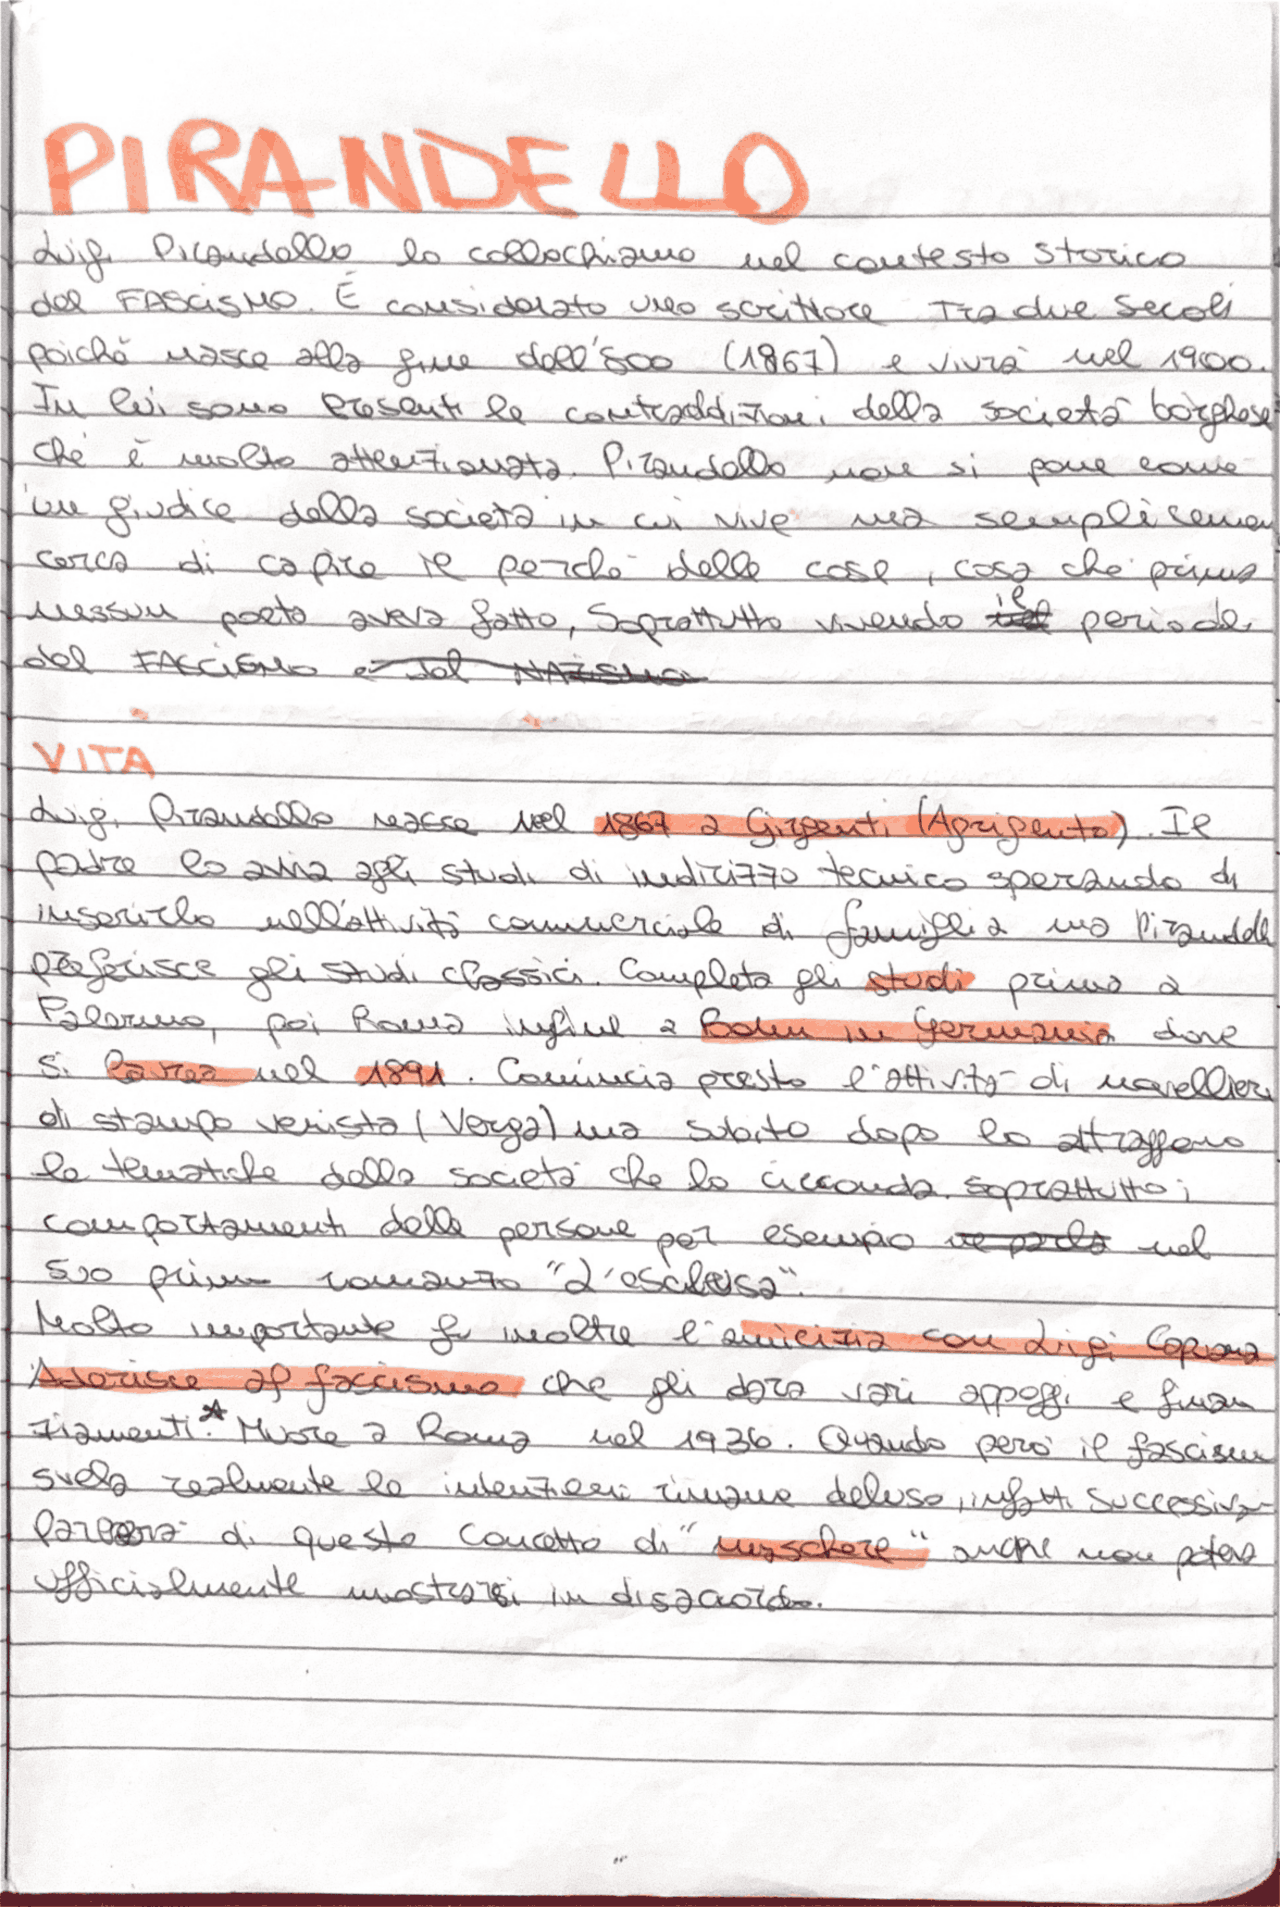 PIRANDELLO
Luigi Pirandello lo collochiamo nel contesto storico
del FASCISMO. È considerato uno scrittore tra due secoli
poiché nasce alla fine dell'800 (1867) e vivrà nel 1900.
In lui sono presenti le contraddizioni della società borghese
che è molto attenzionata. Pirandello non si pone come
un giudice della società in cui vive ma semplicemen
cerca di capire il perché delle cose, cosa che prima
nessun poeta aveva fatto, soprattutto vivendo il periodo
del FASCISMO e del NAZISMO
VITA
Luigi Pirandello nasce nel 1867 a Girgenti (Agrigento). Il
padre lo avvia agli studi di indirizzo tecnico sperando di
inserirlo nell'attività commerciale di famiglia ma Pirandell
preferisce gli studi classici. Completa gli studi prima a
Palermo, poi Roma infine a Bonn in Germania dove
si laurea nel 1891. Comincia presto l'attività di novellier
di stampo verista (Verga) ma subito dopo lo attraggono
le tematiche della società che lo circonda soprattutto i
comportamenti delle persone per esempio nel
suo primo romanzo "L'esclusa".
Molto importante fu inoltre l'amicizia con Luigi Capuana
Aderisce al fascismo che gli darà vari appoggi e finan
ziamenti.* Muore a Roma nel 1936. Quando però il fascism
svela realmente le intenzioni rimane deluso, infatti successiva
parlerà di questo concetto di "maschere" anche non poteva
ufficialmente mostrarsi in disaccordo.